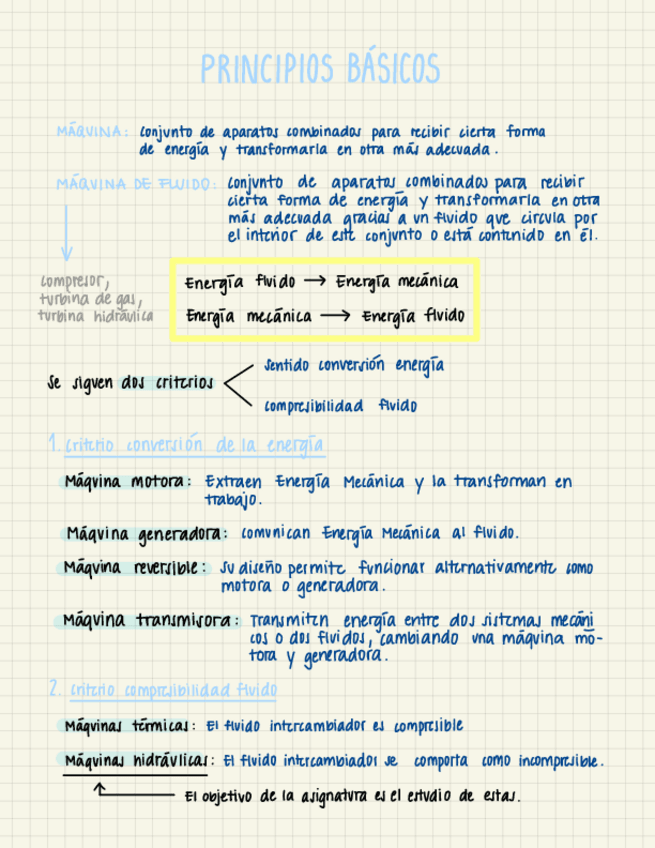 PRINCIPIOS BÁSICOS
MÁQUINA: conjunto de aparatos combinados para recibir cierta forma
de energía y transformarla en otra más adecuada.
MÁQUINA DE FLUIDO: conjunto de aparatos combinados para recibir
cierta forma de energía y transformarla en otra
más adecuada gracias a un fluido que circula por
el interior de este conjunto o está contenido en él.
compresor,
turbina de gas,
turbina hidráulica
Energía fluido → Energía mecánica
Energía mecánica → Energía fluido
Se siguen dos criterios
sentido conversión energía
compresibilidad fluido
1. Criterio conversión de la energía
Máquina motora: Extraen Energía Mecánica y la transforman en
trabajo.
Máquina generadora: comunican Energía Mecánica al fluido.
Máquina reversible: Su diseño permite funcionar alternativamente como
motora o generadora.
Máquina transmisora: Transmiten energía entre dos sistemas mecáni
cos o dos fluidos, cambiando una máquina mo-
tora y generadora.
2. Criterio compresibilidad fluido
Máquinas térmicas: El fluido intercambiador es compresible
Máquinas hidráulicas: El fluido intercambiador se comporta como incompresible.
El objetivo de la asignatura es el estudio de estas.